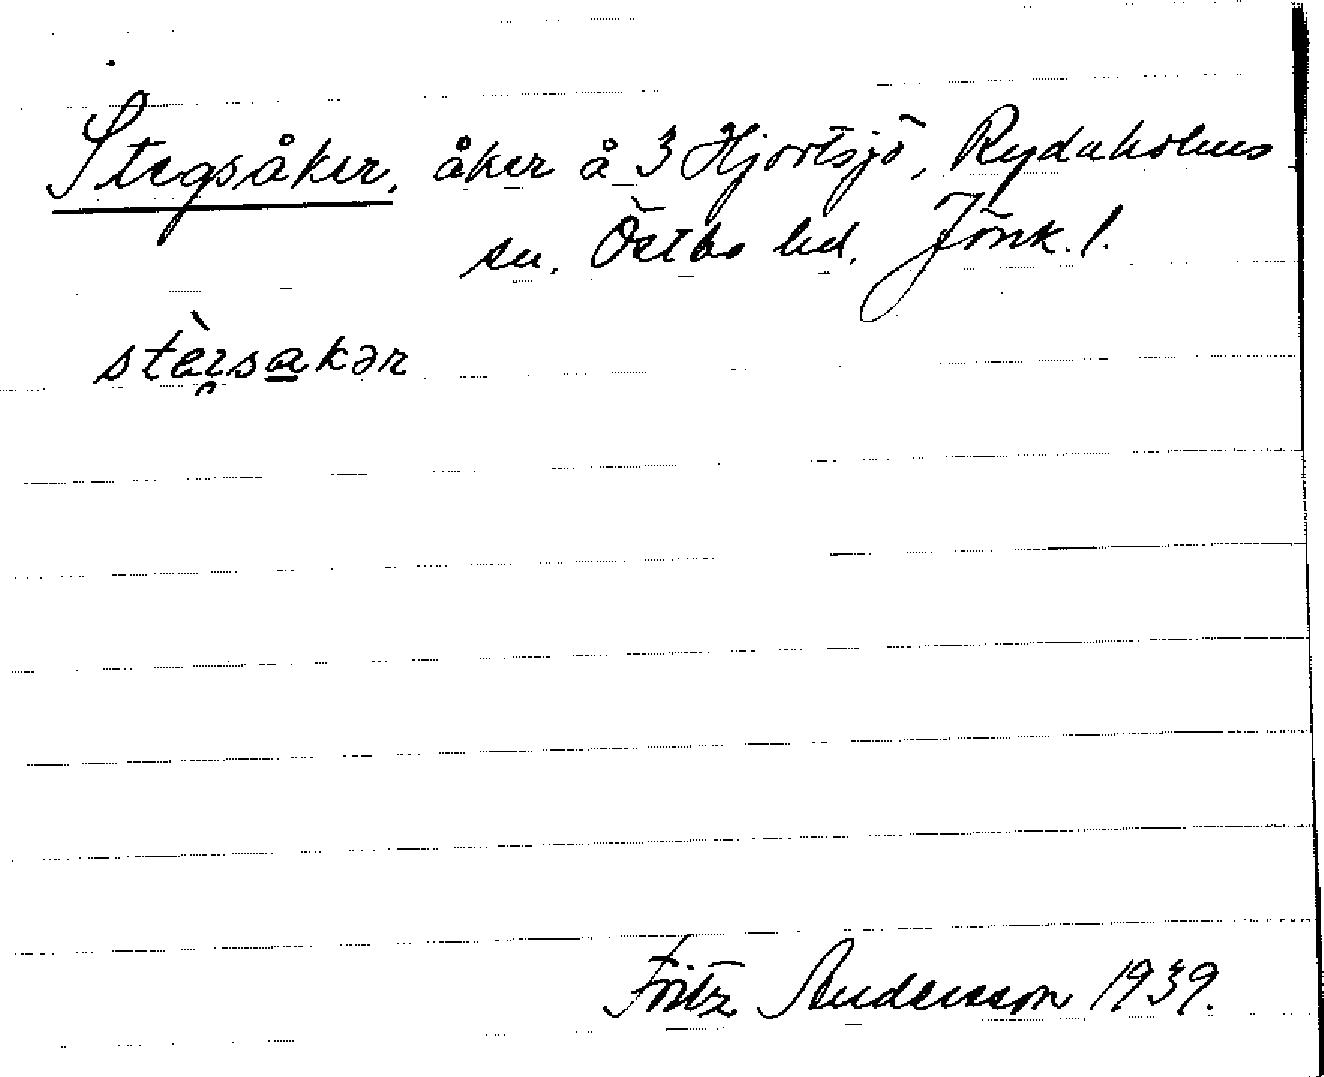 Stegsåker, åker å 3 Hjortsjö, Rydaholms
sn. Östbo hd. Jönk. l.
stèi̯sakər
Fritz Andersson 1939.